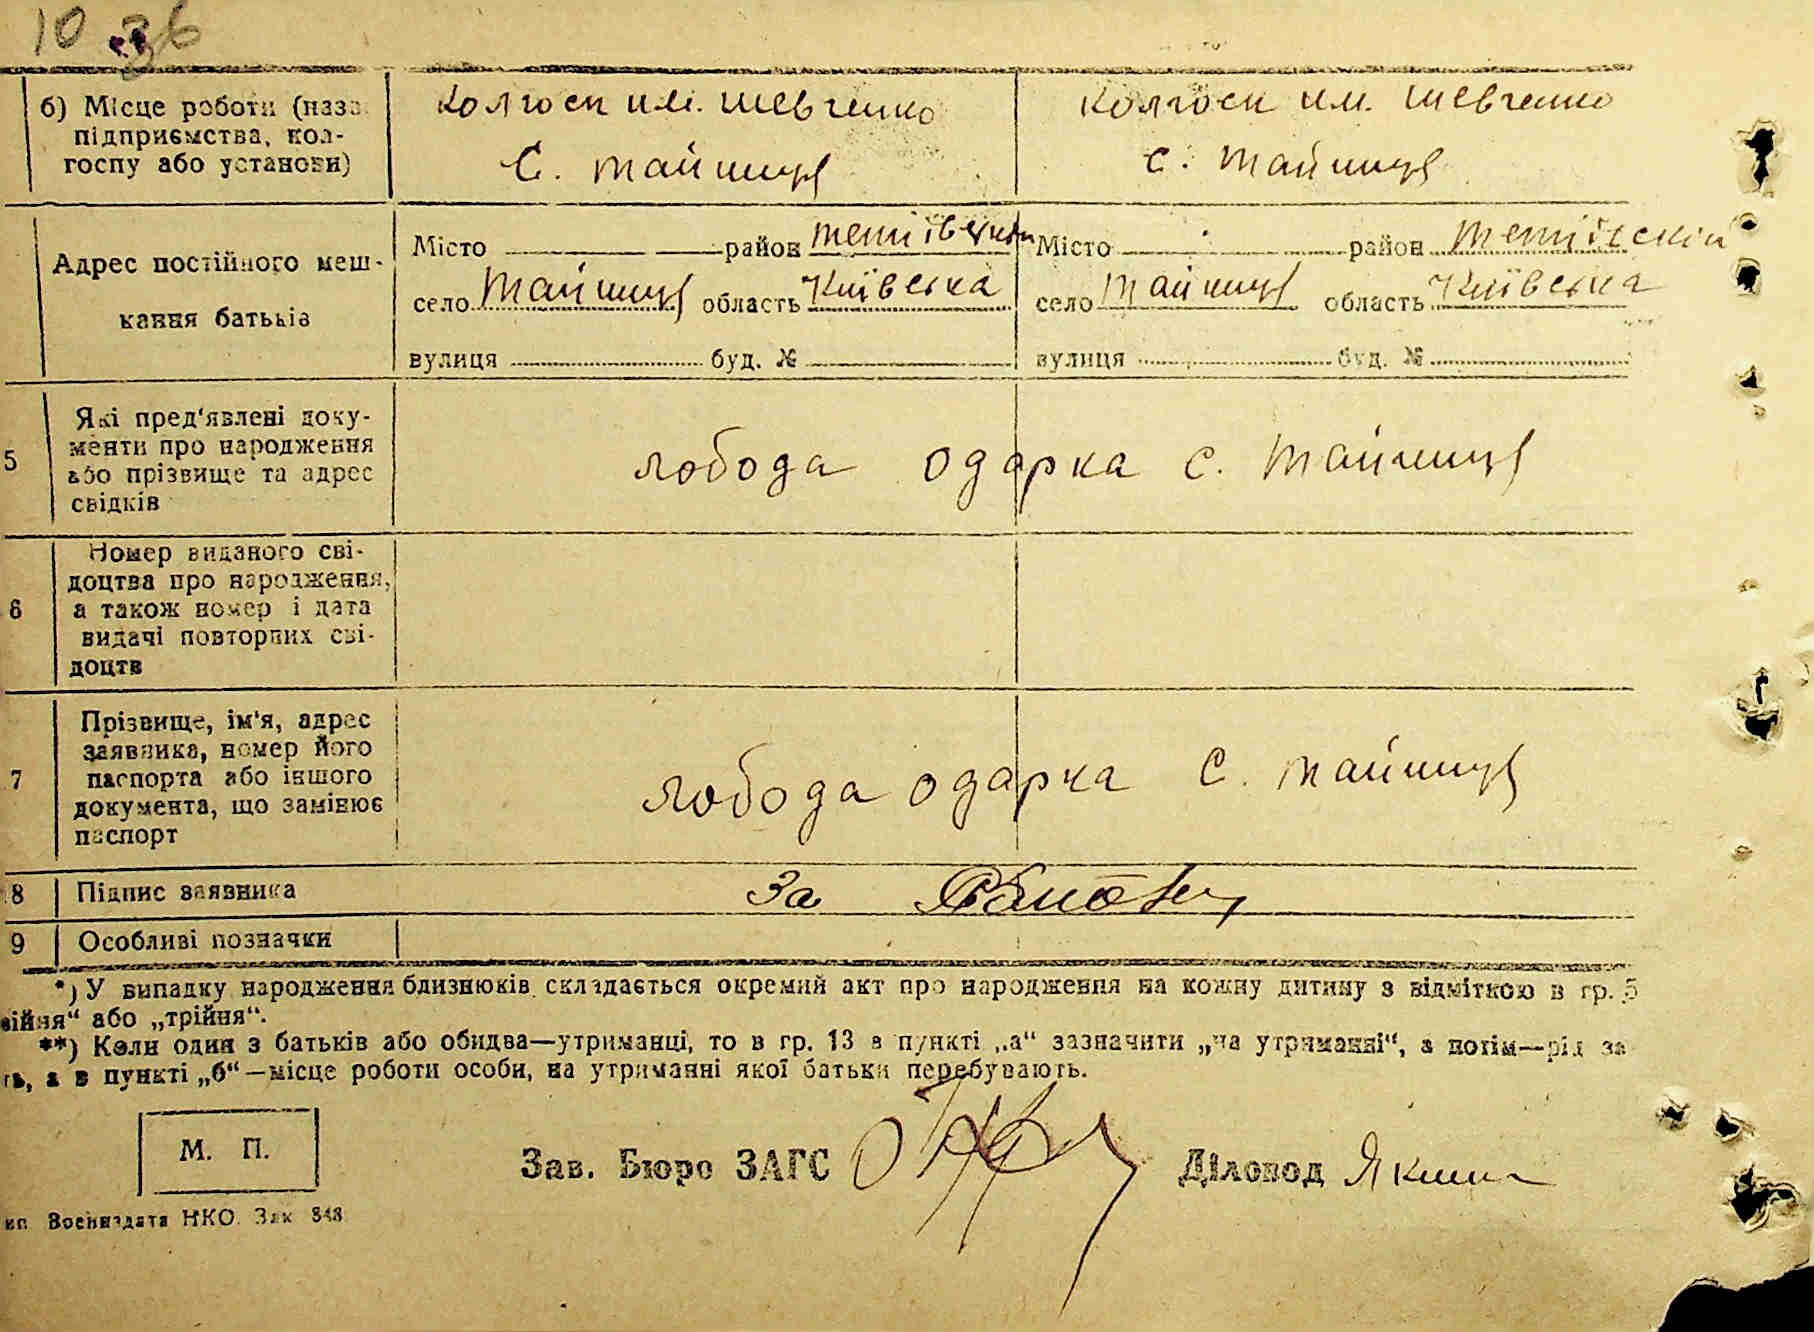 10 36
б) Місце роботи (назв. колгосп им. шевченко колгосп им. шевченко
підприємства, кол-
госпу або установи) с. тайниця с. тайниця
Місто район тетіївський Місто район тетіївский
Адрес постійного меш-
село Тайниця область Київська село Тайниця область Київська
кання батьків
вулиця буд. № вулиця буд. №
5 Які пред'явлені доку-
менти про народження
або прізвище та адрес
свідків
лобода одарка с. тайниця
6 Номер виданого сві-
доцтва про народження,
а також номер і дата
видачі повторних сві-
доцтв
7 Прізвище, ім'я, адрес
заявника, номер його
паспорта або іншого
документа, що замінює
паспорт
лобода одарка с. тайниця
8 Підпис заявника За
9 Особливі позначки
*) У випадку народження близнюків складається окремий акт про народження на кожну дитину з відміткою в гр. 5
війня“ або „трійня“.
**) Коли один з батьків або обидва—утриманці, то в гр. 13 в пункті „а“ зазначити „на утриманні“, а потім—рід за
ть, а в пункті „б“—місце роботи особи, на утриманні якої батьки перебувають.
М. П.
Зав. Бюро ЗАГС Діловод
ип. Воениздата НКО. Зак 848